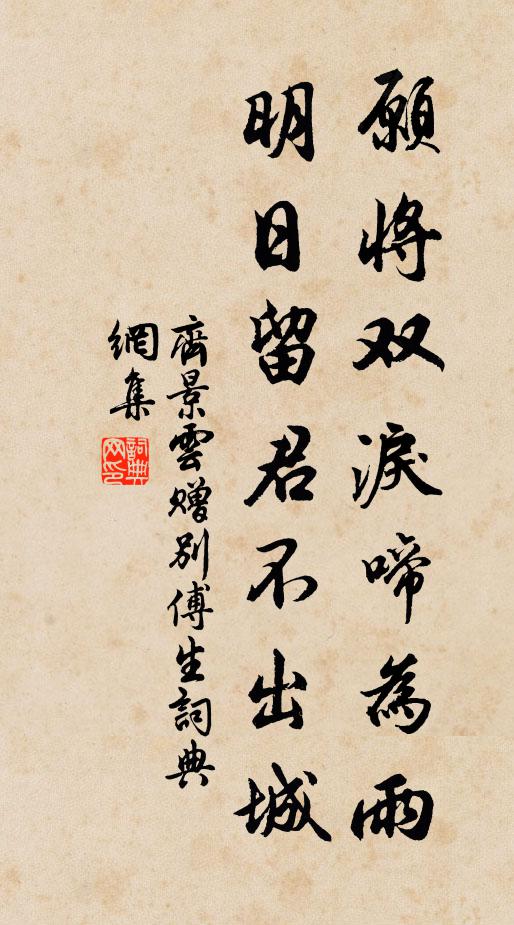 願將双淚啼為雨
明日留君不出城
齊景雲贈別傅生詞典
網集
詞典网印